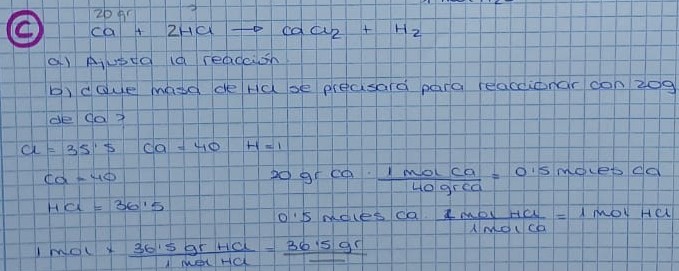 20 gr ?
C Ca + 2HCl → CaCl2 + H2
a) Ajusta la reacción
b) ¿Que masa de HCl se precisará para reaccionar con 20g
de Ca?
Cl = 35'5 Ca = 40 H = 1
Ca = 40 20 gr Ca · 1 mol Ca / 40 gr Ca = 0'5 moles Ca
HCl = 36'5
0'5 moles Ca · 2 mol HCl / 1 mol Ca = 1 mol HCl
1 mol × 36'5 gr HCl / 1 mol HCl = 36'5 gr